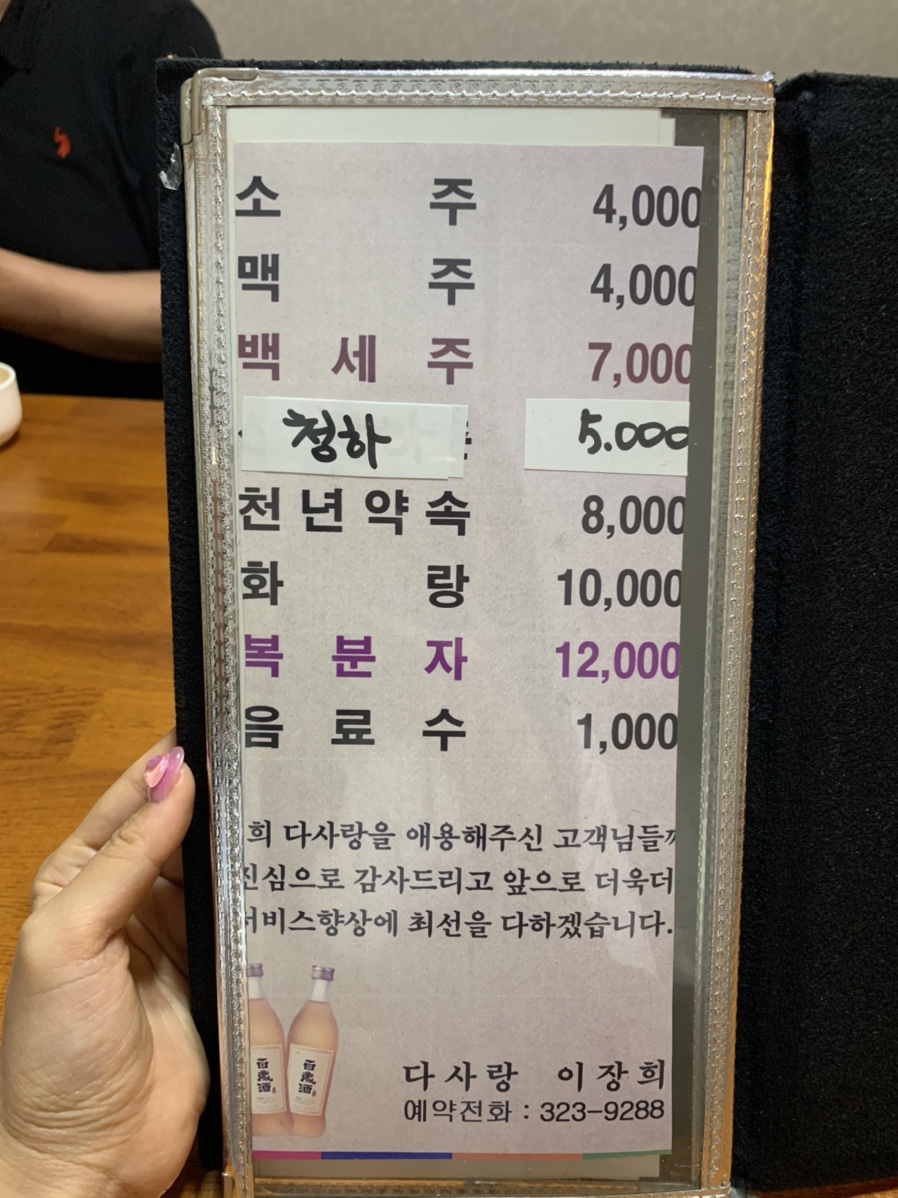 소 주 4,000
맥 주 4,000
백 세 주 7,000
청하 5.000
천 년 약 속 8,000
화 랑 10,000
복 분 자 12,000
음 료 수 1,000
희 다사랑을 애용해주신 고객님들께
진심으로 감사드리고 앞으로 더욱더
서비스향상에 최선을 다하겠습니다.
百歲酒 百歲酒
다사랑 이장희
예약전화 : 323-9288